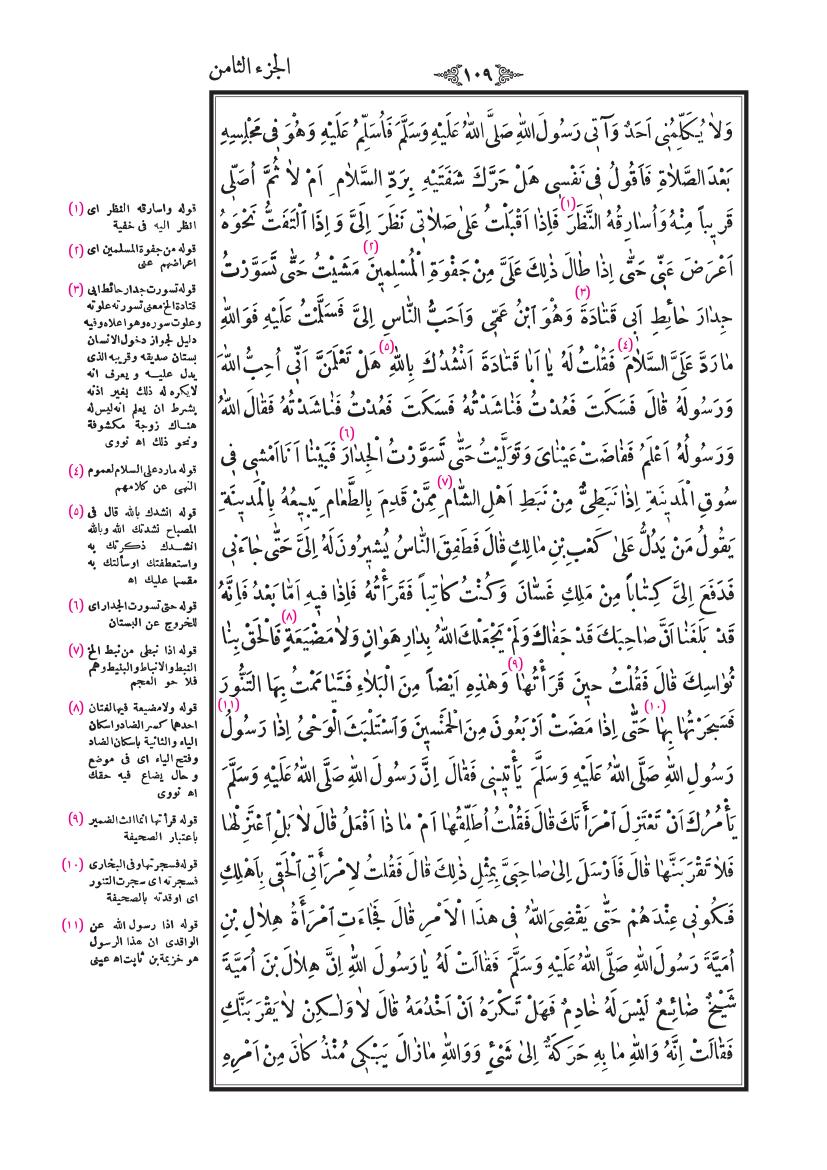 الجزء الثامن
﴿١٠٩﴾
وَلَا يُكَلِّمُنِي اَحَدٌ وَآتِي رَسُولَ اللهِ صَلَّى اللهُ عَلَيْهِ وَسَلَّمَ فَأُسَلِّمُ عَلَيْهِ وَهُوَ فِي مَجْلِسِهِ
بَعْدَ الصَّلَاةِ فَاَقُولُ فِي نَفْسِي هَلْ حَرَّكَ شَفَتَيْهِ بِرَدِّ السَّلَامِ اَمْ لَا ثُمَّ اُصَلِّي
قَرِيباً مِنْهُ وَاُسَارِقُهُ النَّظَرَ (١) فَاِذَا اَقْبَلْتُ عَلَى صَلَاتِي نَظَرَ اِلَيَّ وَاِذَا الْتَفَتُّ نَحْوَهُ
اَعْرَضَ عَنِّي حَتَّى اِذَا طَالَ ذٰلِكَ عَلَيَّ مِنْ جَفْوَةِ الْمُسْلِمِينَ (٢) مَشَيْتُ حَتَّى تَسَوَّرْتُ
جِدَارَ حَائِطِ اَبِي قَتَادَةَ (٣) وَهُوَ ابْنُ عَمِّي وَاَحَبُّ النَّاسِ اِلَيَّ فَسَلَّمْتُ عَلَيْهِ فَوَاللهِ
مَا رَدَّ عَلَيَّ السَّلَامَ (٤) فَقُلْتُ لَهُ يَا اَبَا قَتَادَةَ اَنْشُدُكَ بِاللهِ (٥) هَلْ تَعْلَمَنَّ اَنِّي اُحِبُّ اللهَ
وَرَسُولَهُ قَالَ فَسَكَتَ فَعُدْتُ فَنَاشَدْتُهُ فَسَكَتَ فَعُدْتُ فَنَاشَدْتُهُ فَقَالَ اللهُ
وَرَسُولُهُ اَعْلَمُ فَفَاضَتْ عَيْنَايَ وَتَوَلَّيْتُ حَتَّى تَسَوَّرْتُ الْجِدَارَ (٦) فَبَيْنَا اَنَا اَمْشِي فِي
سُوقِ الْمَدِينَةِ اِذَا نَبَطِيٌّ مِنْ نَبَطِ اَهْلِ الشَّامِ (٧) مِمَّنْ قَدِمَ بِالطَّعَامِ يَبِيعُهُ بِالْمَدِينَةِ
يَقُولُ مَنْ يَدُلُّ عَلَى كَعْبِ بْنِ مَالِكٍ قَالَ فَطَفِقَ النَّاسُ يُشِيرُونَ لَهُ اِلَيَّ حَتَّى جَاءَنِي
فَدَفَعَ اِلَيَّ كِتَاباً مِنْ مَلِكِ غَسَّانَ وَكُنْتُ كَاتِباً فَقَرَأْتُهُ فَاِذَا فِيهِ اَمَّا بَعْدُ فَاِنَّهُ
قَدْ بَلَغَنَا اَنَّ صَاحِبَكَ قَدْ جَفَاكَ وَلَمْ يَجْعَلْكَ اللهُ بِدَارِ هَوَانٍ وَلَا مَضْيَعَةٍ (٨) فَالْحَقْ بِنَا
نُوَاسِكَ قَالَ فَقُلْتُ حِينَ قَرَأْتُهَا (٩) وَهٰذِهِ اَيْضاً مِنَ الْبَلَاءِ فَتَيَامَمْتُ بِهَا التَّنُّورَ
فَسَجَرْتُهَا بِهَا (١٠) حَتَّى اِذَا مَضَتْ اَرْبَعُونَ مِنَ الْخَمْسِينَ وَاسْتَلْبَثَ الْوَحْيُ اِذَا رَسُولُ (١١)
رَسُولِ اللهِ صَلَّى اللهُ عَلَيْهِ وَسَلَّمَ يَأْتِينِي فَقَالَ اِنَّ رَسُولَ اللهِ صَلَّى اللهُ عَلَيْهِ وَسَلَّمَ
يَأْمُرُكَ اَنْ تَعْتَزِلَ امْرَأَتَكَ قَالَ فَقُلْتُ اُطَلِّقُهَا اَمْ مَا ذَا اَفْعَلُ قَالَ لَا بَلِ اعْتَزِلْهَا
فَلَا تَقْرَبَنَّهَا قَالَ فَاَرْسَلَ اِلَى صَاحِبَيَّ بِمِثْلِ ذٰلِكَ قَالَ فَقُلْتُ لِامْرَأَتِي الْحَقِي بِاَهْلِكِ
فَكُونِي عِنْدَهُمْ حَتَّى يَقْضِيَ اللهُ فِي هٰذَا الْاَمْرِ قَالَ فَجَاءَتِ امْرَأَةُ هِلَالِ بْنِ
اُمَيَّةَ رَسُولَ اللهِ صَلَّى اللهُ عَلَيْهِ وَسَلَّمَ فَقَالَتْ لَهُ يَا رَسُولَ اللهِ اِنَّ هِلَالَ بْنَ اُمَيَّةَ
شَيْخٌ ضَائِعٌ لَيْسَ لَهُ خَادِمٌ فَهَلْ تَكْرَهُ اَنْ اَخْدُمَهُ قَالَ لَا وَلٰكِنْ لَا يَقْرَبَنَّكِ
فَقَالَتْ اِنَّهُ وَاللهِ مَا بِهِ حَرَكَةٌ اِلَى شَيْءٍ وَوَاللهِ مَا زَالَ يَبْكِي مُنْذُ كَانَ مِنْ اَمْرِهِ
(١) قوله واسارقه النظر اى
انظر اليه فى خفية
(٢) قوله من جفوة المسلمين اى
اعراضهم عنى
(٣) قوله تسورت جدار حائط ابى
قتادة الخ معنى تسورته علوته
وعلوت سوره وهو اعلاه وفيه
دليل لجواز دخول الانسان
بستان صديقه وقريبه الذى
يدل عليه و يعرف انه
لايكره له ذلك بغير اذنه
بشرط ان يعلم انه ليس له
هناك زوجة مكشوفة
ونحو ذلك اه نووى
(٤) قوله مارد على السلام لعموم
النهى عن كلامهم
(٥) قوله انشدك بالله قال فى
المصباح نشدتك الله وبالله
انشدك ذكرتك به
واستعطفتك اوسألتك به
مقسما عليك اه
(٦) قوله حتى تسورت الجدار اى
للخروج عن البستان
(٧) قوله اذا نبطى من نبط الخ
النبط والانباط والنبيط وهم
فلا حو العجم
(٨) قوله ولا مضيعة فيها لغتان
احدها كسر الضاد واسكان
الياء والثانية باسكان الضاد
وفتح الياء اى فى موضع
وحال يضاع فيه حقك
اه نووى
(٩) قوله قرأتها انما انث الضمير
باعتبار الصحيفة
(١٠) قوله فسجرتها وفى البخارى
فسجرته اى سجرت التنور
اى اوقدته بالصحيفة
(١١) قوله اذا رسول الله عن
الواقدى ان هذا الرسول
هو خزيمة بن ثابت اه عينى